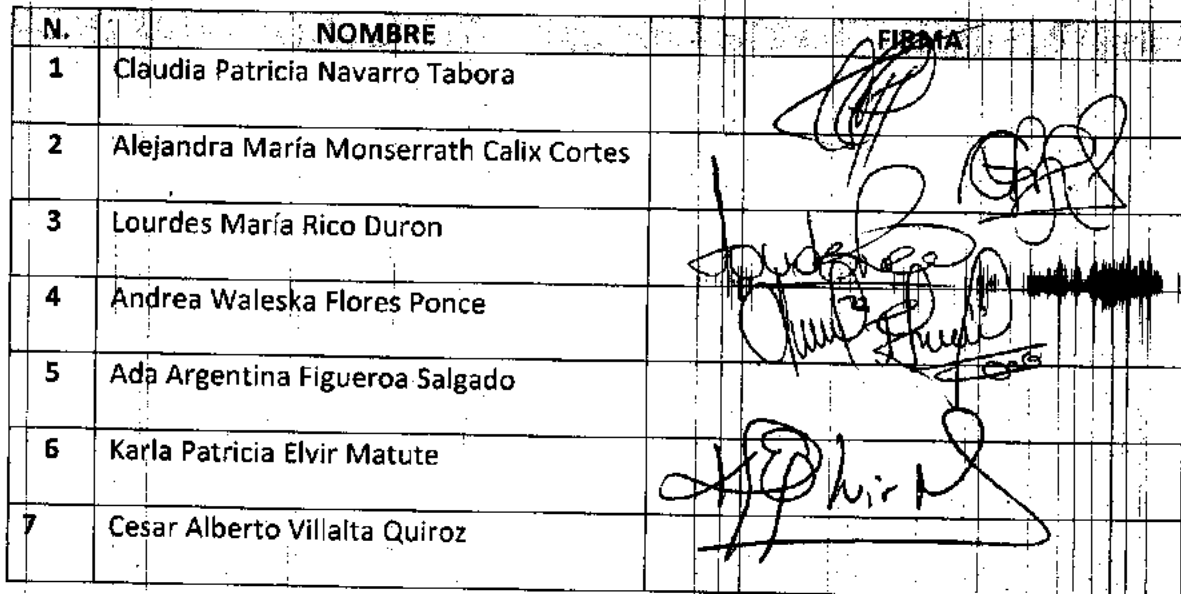 N. NOMBRE FIRMA
1 Claudia Patricia Navarro Tabora
2 Alejandra María Monserrath Calix Cortes
3 Lourdes María Rico Duron
4 Andrea Waleska Flores Ponce
5 Ada Argentina Figueroa Salgado
6 Karla Patricia Elvir Matute
7 Cesar Alberto Villalta Quiroz